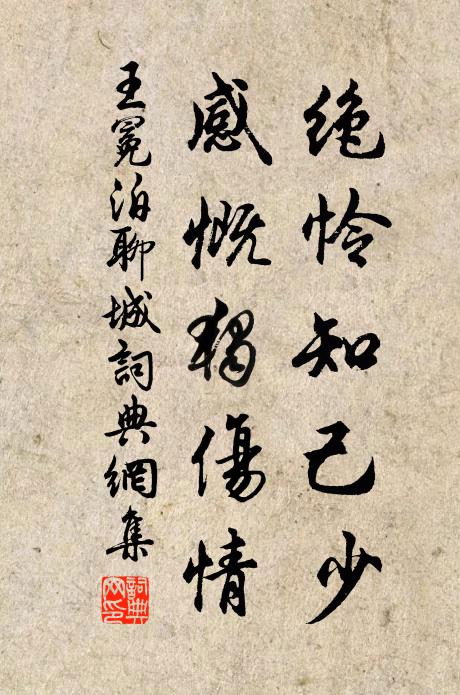 絶怜知己少
感慨獨傷情
王冕泊聊城詞典網集
詞典網印